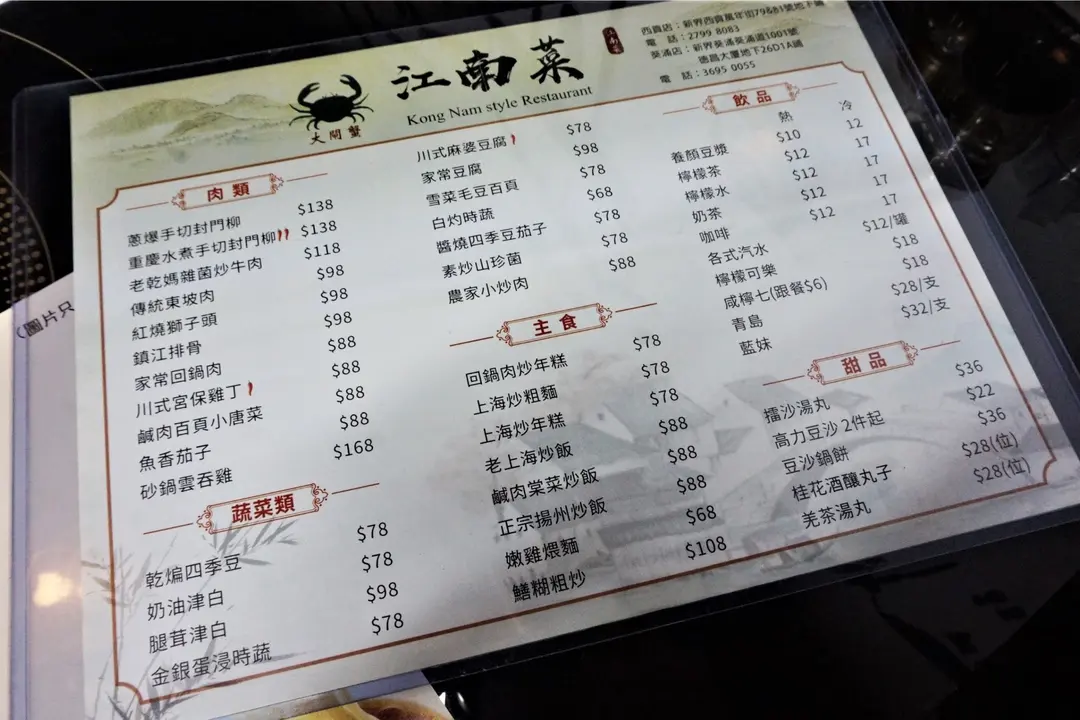 江南菜
Kong Nam style Restaurant
大閘蟹
西貢店：新界西貢萬年街79&81號地下舖
電 話：2799 8083
葵涌店：新界葵涌葵涌道1001號
德昌大廈地下26D1A舖
電 話：3695 0055
(圖片只
肉類
蔥爆手切封門柳 $138
重慶水煮手切封門柳 $138
老乾媽雜菌炒牛肉 $118
傳統東坡肉 $98
紅燒獅子頭 $98
鎮江排骨 $98
家常回鍋肉 $88
川式宮保雞丁 $88
鹹肉百頁小唐菜 $88
魚香茄子 $88
砂鍋雲吞雞 $168
蔬菜類
乾煸四季豆 $78
奶油津白 $78
腿茸津白 $98
金銀蛋浸時蔬 $78
川式麻婆豆腐 $78
家常豆腐 $98
雪菜毛豆百頁 $78
白灼時蔬 $68
醬燒四季豆茄子 $78
素炒山珍菌 $78
農家小炒肉 $88
主食
回鍋肉炒年糕 $78
上海炒粗麵 $78
上海炒年糕 $78
老上海炒飯 $88
鹹肉棠菜炒飯 $88
正宗揚州炒飯 $88
嫩雞煨麵 $68
鱔糊粗炒 $108
飲品
熱 冷
養顏豆漿 $10 12
檸檬茶 $12 17
檸檬水 $12 17
奶茶 $12 17
咖啡 $12 17
各式汽水 $12/罐
檸檬可樂 $18
咸檸七(跟餐$6) $18
青島 $28/支
藍妹 $32/支
甜品
擂沙湯丸 $36
高力豆沙 2件起 $22
豆沙鍋餅 $36
桂花酒釀丸子 $28(位)
羌茶湯丸 $28(位)